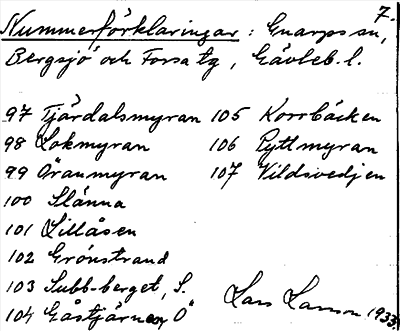 7.
Nummerförklaringar: Gnarps sn,
Bergsjö och Forsa tg, Gävleb. l.
97 Tjärdalsmyran 105 Korrbäcken
98 Lokmyran 106 Pyttmyran
99 Öranmyran 107 Vildsvedjen
100 Slånna
101 Lillåsen
102 Grönstrand
103 Subb-berget, S.
104 Gåstjärnen, Ö Lars Larsson 1933